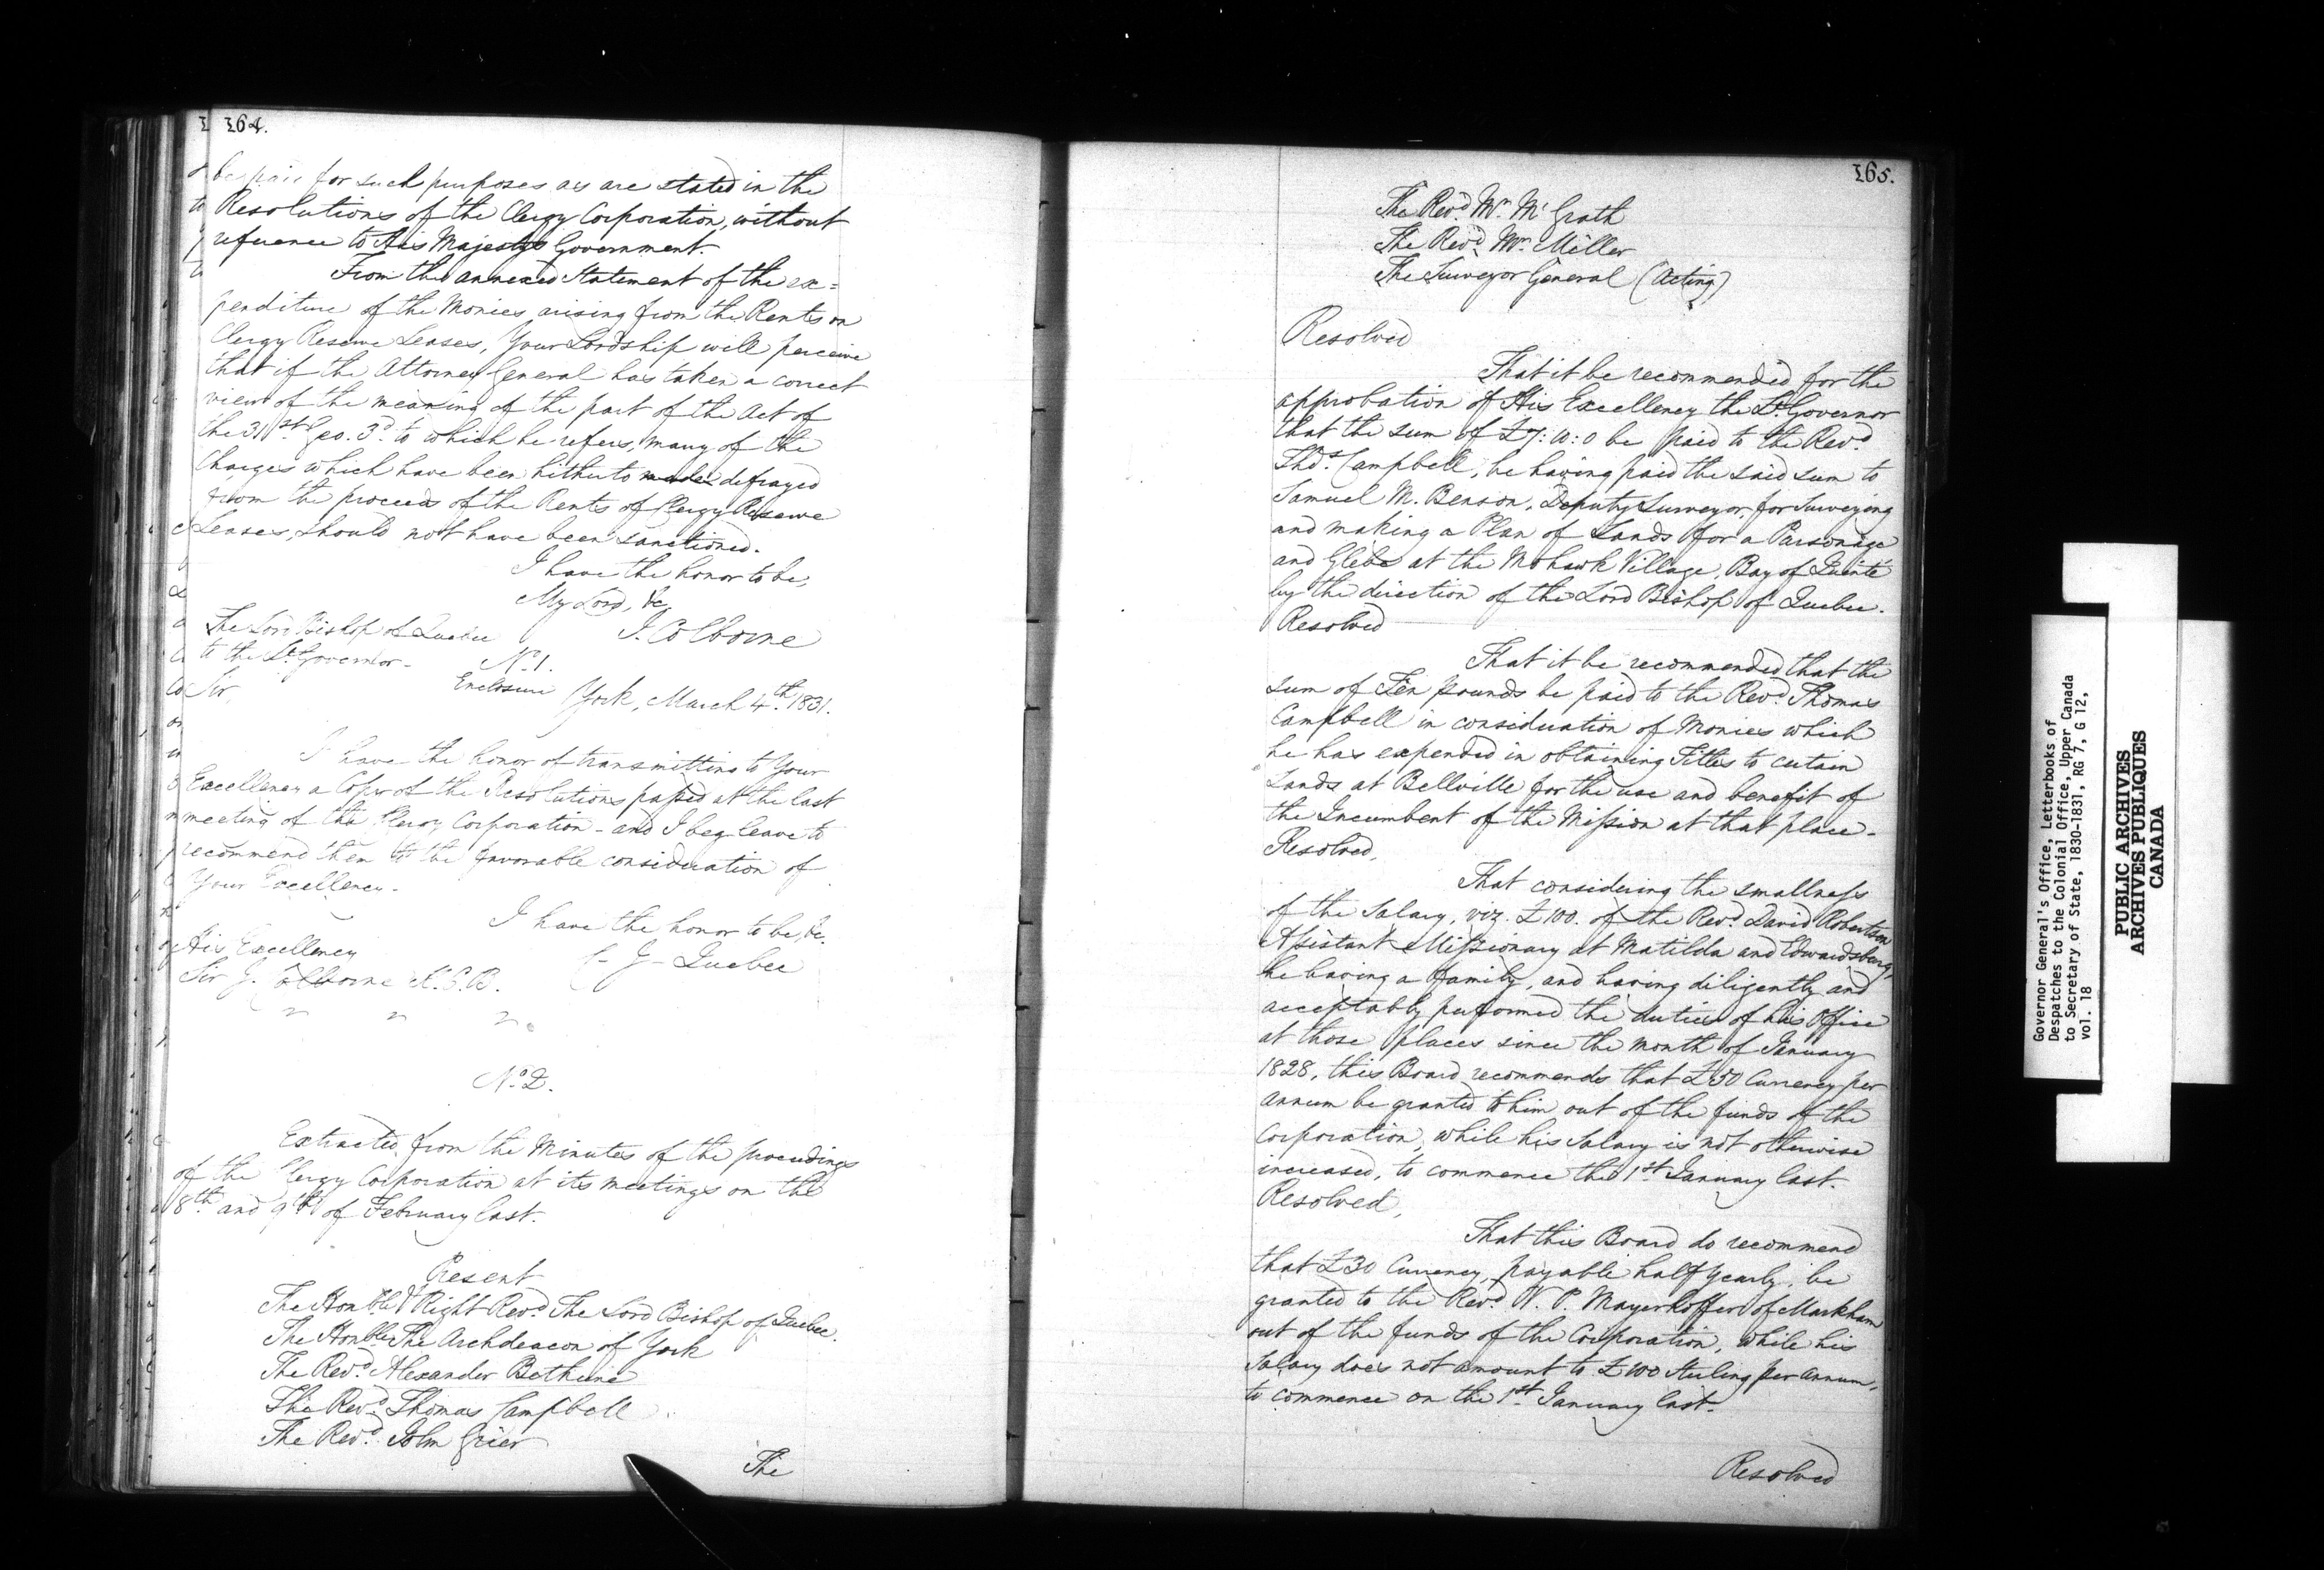 164.
be paid for such purposes as are stated in the
Resolutions of the Clergy Corporation, without
reference to His Majestys Government.
From the annexed Statement of the ex=
penditure of the Monies arising from the Rents on
Clergy Reserve Leases, Your Lordship will perceive
that if the Attorney General has taken a correct
view of the meaning of the part of the Act of
the 31st Geo. 3d to which he refers, many of the
Charges which have been hitherto made defrayed
from the proceeds of the Rents of Clergy Reserve
Leases, should not have been sanctioned.
I have the honor to be,
My Lord, &c
J. Colborne
The Lord Bishop of Quebec
to the Lt Governor.
No 1.
Enclosure
York, March 4th 1831.
Sir,
I have the honor of transmitting to Your
Excellency a Copy of the Resolutions passed at the last
meeting of the Clergy Corporation - and I beg leave to
recommend them to the favorable consideration of
Your Excellency.
I have the honor to be, &c.
C. J. Quebec
His Excellency
Sir J. Colborne K.C.B.
No 2.
Extracted from the Minutes of the proceedings
of the Clergy Corporation at its meetings on the
8th and 9th of February last.
Present
The Honble & Right Revd The Lord Bishop of Quebec.
The Honble The Archdeacon of York
The Revd Alexander Bethune
The Revd Thomas Campbell
The Revd John Grier
The
165.
The Revd Mr McGrath
The Revd Mr Miller
The Surveyor General (Acting)
Resolved
That it be recommended for the
approbation of His Excellency the Lt Governor
that the sum of £7:10:0 be paid to the Revd
Thos Campbell, he having paid the said sum to
Samuel M. Benson, Deputy Surveyor, for Surveying
and making a Plan of Lands for a Parsonage
and Glebe at the Mohawk Village, Bay of Quinté
by the direction of the Lord Bishop of Quebec.
Resolved
That it be recommended that the
sum of Ten pounds be paid to the Revd Thomas
Campbell in consideration of Monies which
he has expended in obtaining Titles to certain
Lands at Bellville for the use and benefit of
the Incumbent of the Mission at that place.
Resolved,
That considering the smallness
of the Salary, viz. £100. of the Revd David Robertson
Assistant Missionary at Matilda and Edwardsburg,
he having a family, and having diligently and
acceptably performed the duties of his Office
at those places since the month of January
1828, this Board recommends that £50 Currency per
annum be granted to him out of the funds of the
Corporation, while his Salary is not otherwise
increased, to commence the 1st January last.
Resolved,
That this Board do recommend
that £30 Currency, payable half yearly, be
granted to the Revd V. P. Mayerhoffer of Markham
out of the funds of the Corporation, while his
Salary does not amount to £100 Sterling per annum,
to commence on the 1st January last.
Resolved
Governor General's Office, Letterbooks of
Despatches to the Colonial Office, Upper Canada
to Secretary of State, 1830-1831, RG 7, G 12,
vol. 18
PUBLIC ARCHIVES
ARCHIVES PUBLIQUES
CANADA